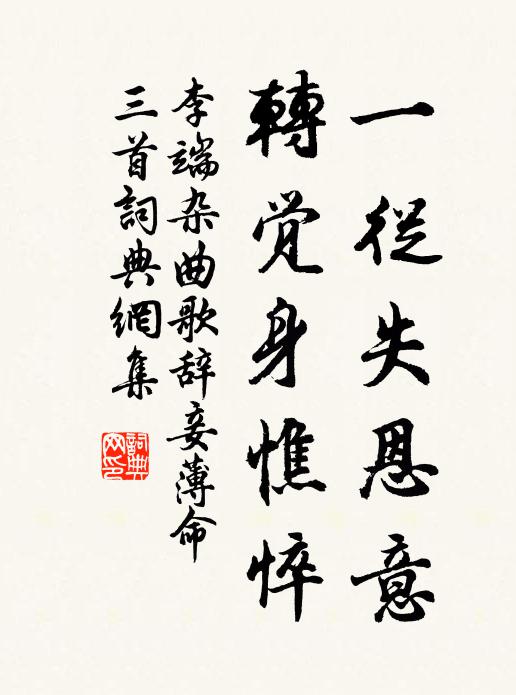 一從失恩意
轉覺身憔悴
李端杂曲歌辞妾薄命
三首詞典網集
詞典網印